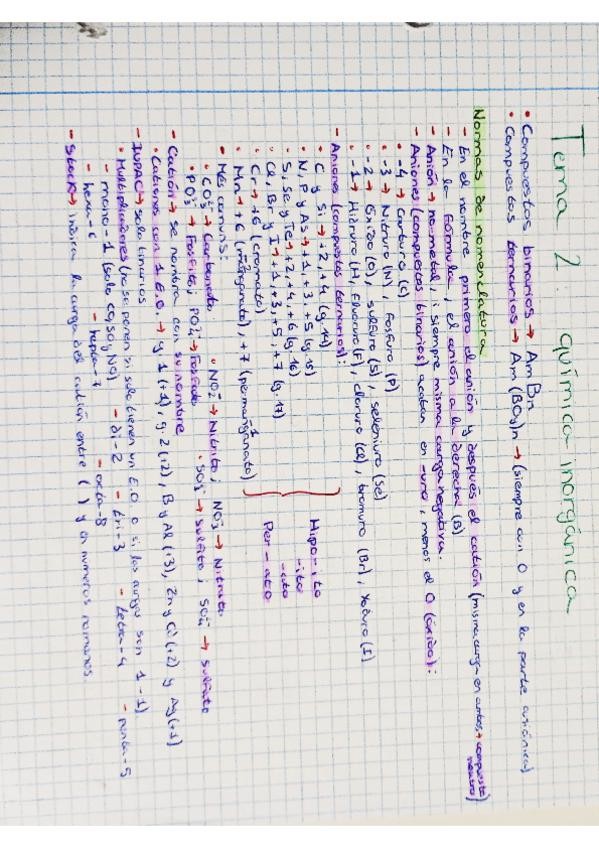 Tema 2. química inorgánica
• Compuestos binarios → AmBn
• Compuestos ternarios → Am(BOy)n → (siempre con O y en la parte aniónica)
Normas de nomenclatura
- En el nombre primero el anión y después el catión (misma carga en ambos, → compuesto neutro)
- En la fórmula, el anión a la derecha (B).
- Anión → no-metal, i siempre misma carga negativa.
- Aniones (compuestos binarios) acaban en -uro, menos el O (óxido):
• -4 → Carburo (C)
• -3 → Nitruro (N), fosfuro (P)
• -2 → Óxido (O), sulfuro (S), seleniuro (Se)
• -1 → Hidruro (H), Fluoruro (F), cloruro (Cl), bromuro (Br), yoduro (I)
- Aniones (compuestos ternarios):
• C y Si → +2, +4 (g.14)
• N, P y As → +1, +3, +5 (g.15)
• S, Se y Te → +2, +4, +6 (g.16)
• Cl, Br y I → +1, +3, +5, +7 (g.17)
• Cr → +6 (cromato)
• Mn → +6 (manganato), +7 (permanganato)
Hipo-ito
-ito
-ato
Per-ato
• Más comuns:
• CO₃²⁻ → Carbonato. • NO₂⁻ → Nitrito; NO₃⁻ → Nitrato.
• PO₃³⁻ → Fosfito; PO₄³⁻ → Fosfato. • SO₃²⁻ → Sulfito; SO₄²⁻ → Sulfato
- Catión → se nombra con su nombre
• Cationes con 1 E.O. → g.1 (+1), g.2 (+2), B y Al (+3), Zn y Cd (+2) y Ag (+1)
- IUPAC → solo binarios
• Multiplicadores (no se ponen si solo tienen un E.O. o si las cargas son 1 -1)
- mono-1 (solo CO, SO y NO) - di-2 - tri-3 - tetra-4 - penta-5
- hexa-6 - hepta-7 - octa-8
- Stock → indica la carga del catión entre ( ) y en números romanos.